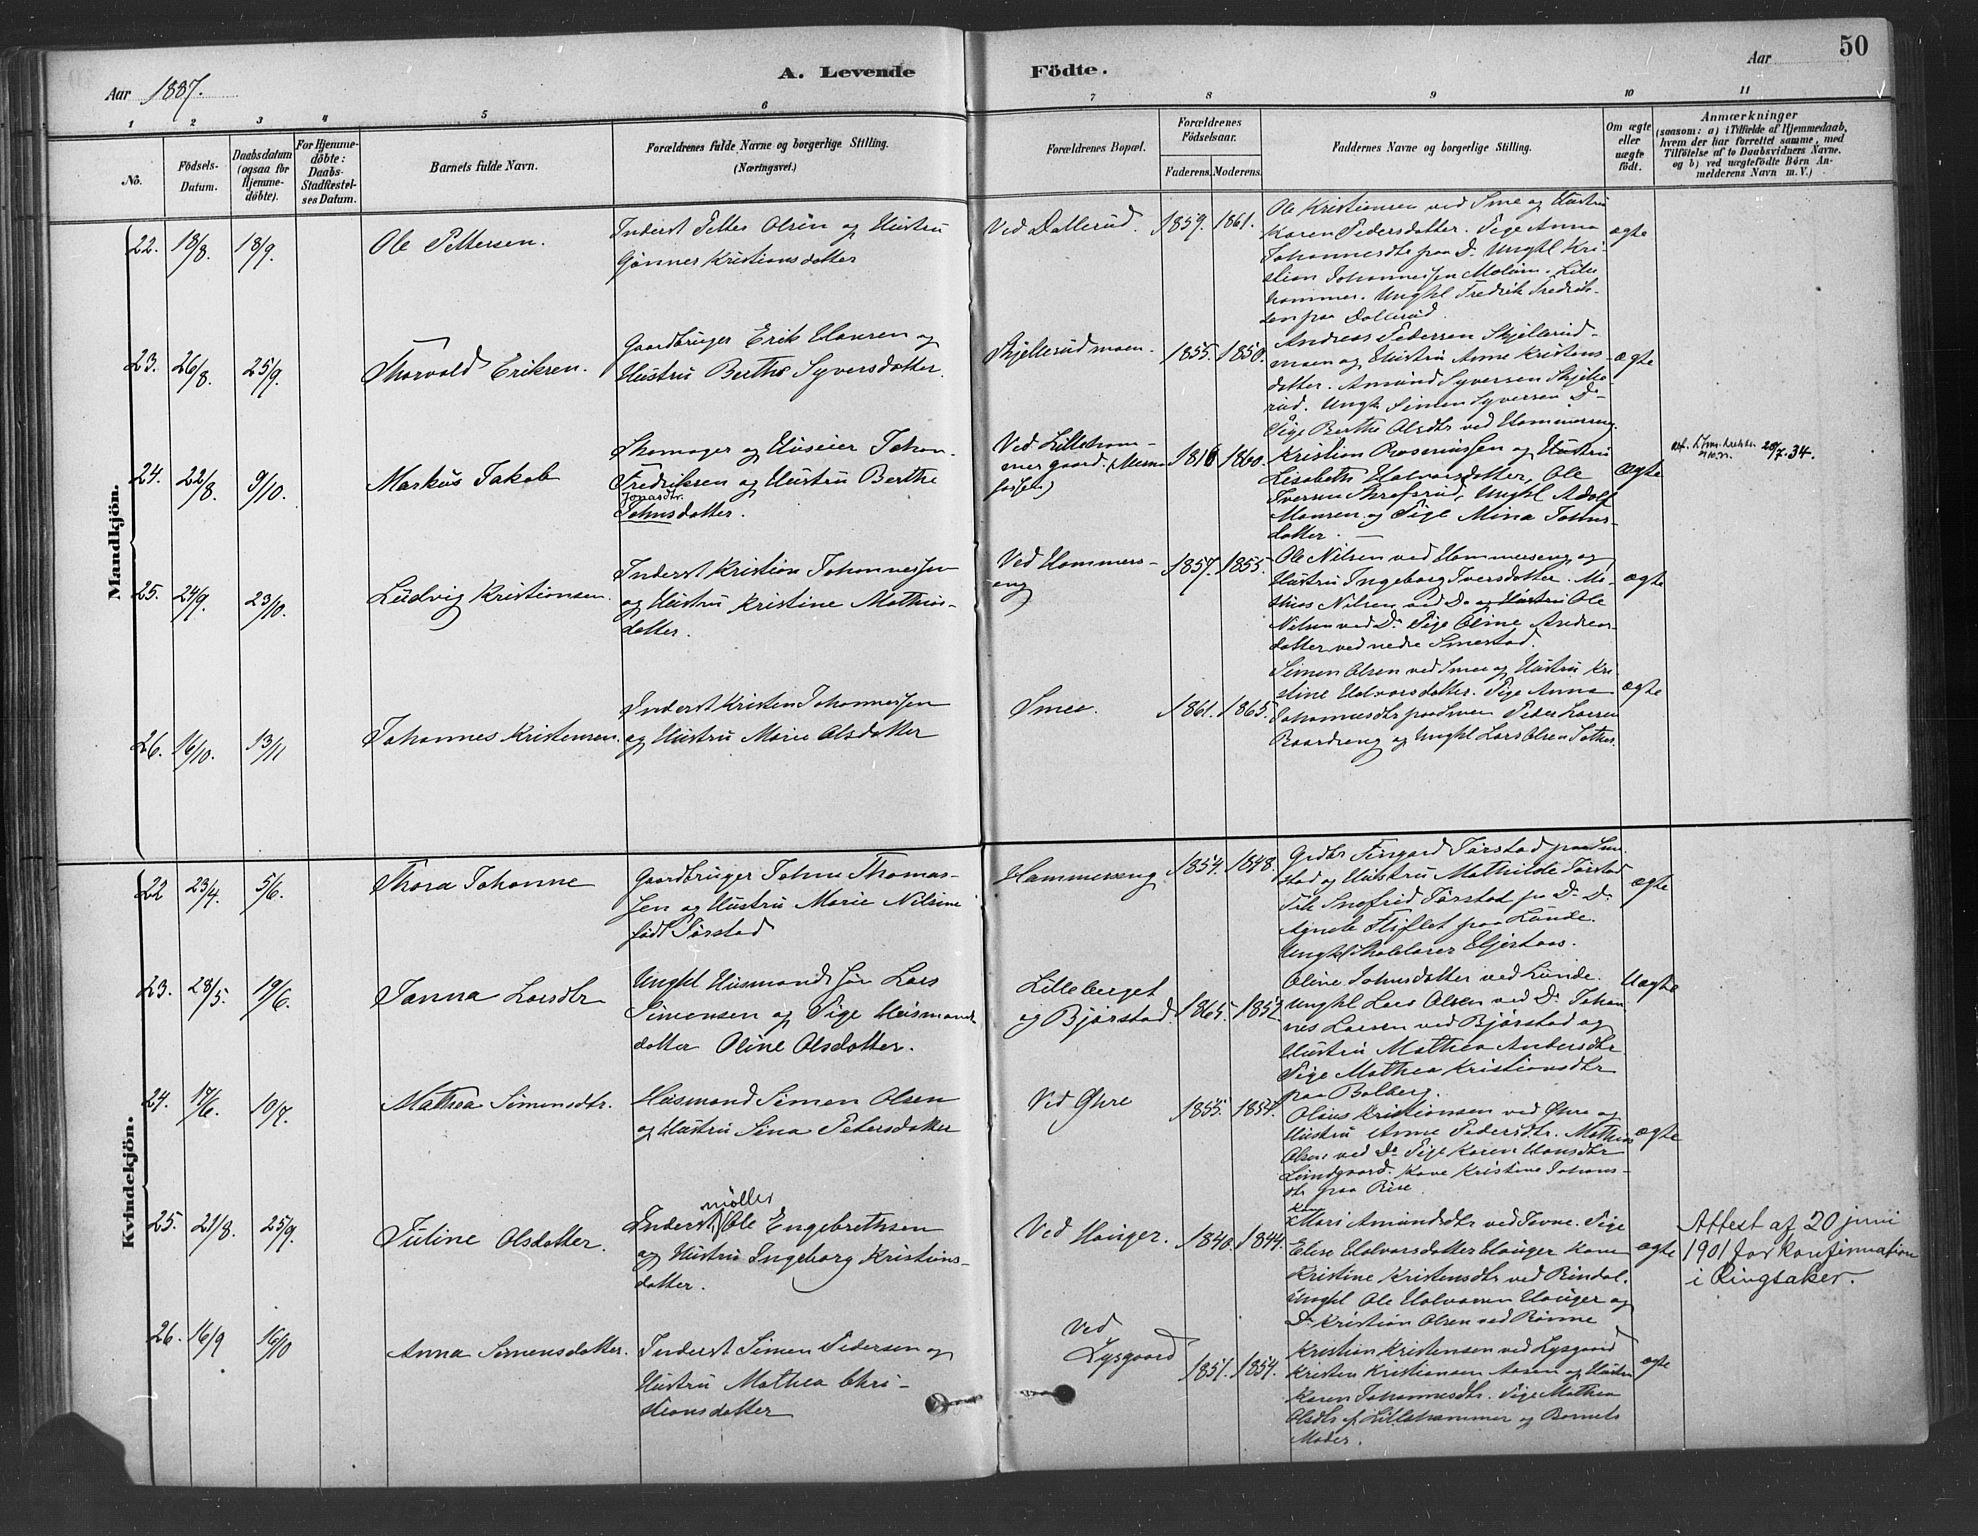 Aar 1887.
A. Levende Födte.
Aar
50
1 2 3 4 5 6 7 8 9 10 11
No.
Födsels-
Datum.
Daabsdatum
(ogsaa for
Hjemme-
döbte).
For Hjemme-
döbte:
Daabs-
Stadfæstel-
ses Datum.
Barnets fulde Navn.
Forældrenes fulde Navne og borgerlige Stilling.
(Næringsvei.)
Forældrenes Bopæl.
Forældrenes
Födselsaar.
Faderens. Moderens.
Faddernes Navne og borgerlige Stilling.
Om ægte
eller
uægte
födt.
Anmærkninger
(saasom: a) i Tilfælde af Hjemmedaab,
hvem der har forrettet samme, med
Tilföielse af to Daabsvidners Navne.
og b) ved uægtefödte Börn An-
melderens Navn m. V.)
Mandkjön.
22. 18/8 18/9
Ole Pettersen.
Inderst Petter Olsen og Hustru
Gønner Kristiansdatter
Ved Dallerud.
1859. 1861.
Ole Kristiansen ved Smee og Hustru
Karen Pedersdatter. Pige Anna
Johannesdtr paa Do. Ungkl Kri-
stian Johannessen Moløm. Lille-
hammer. Ungkl Fredrik Fredrik-
sen paa Dallerud.
ægte
23. 26/8. 25/9.
Thorvald Eriksen.
Gaardbruger Erik Hansen og
Hustru Berthe Syversdatter.
Skjellerudmoen.
1855. 1850.
Andreas Pedersen Skjellerud-
moen og Hustru Anne Kristens-
datter. Amund Syversen Skjelle-
rud. Ungk. Simen Syversen Do
Pige Berthe Olsdtr ved Hammerseng
ægte
24. 22/8. 9/10.
Markus Jakob
Skomager og Huseier Johan
Fredriksen og Hustru Berthe
Jonasdtr.
Johnsdatter.
Ved Lilleham-
mer gaard.
1816 1860.
Kristian Roseniussen og Hustru
Lisabeth Halvorsdatter, Ole
Iversen Skrefsrud, Ungkl Adolf
Hansen og Pige Mina Johns-
datter.
ægte
20/7. 34.
25. 24/9. 23/10.
Ludvig Kristiansen.
Inderst Kristian Johannessen
og Hustru Kristine Mathias-
datter.
Ved Hammers-
eng
1857. 1853.
Ole Nilsen ved Hammerseng og
Hustru Ingeborg Iversdatter. Ma-
thias Nilsen ved Do og Hustru Ole
Nilsen ved Do Pige Oline Andreas-
datter ved nedre Smestad.
ægte
26. 16/10. 13/11
Johannes Kristensen.
Inderst Kristen Johannessen
og Hustru Marie Olsdatter
Smee.
1861. 1865.
Simen Olsen ved Smee og Hustru Kri-
stine Halvorsdatter. Pige Anna
Johannesdtr paa Smee Peder Larsen
Baardseng og Ungkl Lars Olsen
ægte
Kvindekjön.
22 23/4. 5/6.
Thora Johanne
Gaardbruger Johan Thomas-
sen og Hustru Marie Nilsine
født Tørstad
Hammerseng
1854. 1848.
Grdbr Tørstad paa
stad og Hustru Mathilde Tørstad
Frk Snefrid Tørstad paa Do. Do
Agnete Fliflet paa Lunde.
Ungkl Skolelærer
ægte
23. 28/5. 19/6.
Janna Larsdtr
Ungkl Husmands søn Lars
Simensen og Pige Husmands
datter Oline Olsdatter.
Lilleberget
og Bjørstad.
1865. 1852.
Oline Johnsdatter ved Lunde.
Ungkl Lars Olsen ved Do Johan
nes Larsen ved Bjørstad og
Hustru Mathea Andersdtr
Pige Mathea Kristiansdtr
paa Balberg.
Uægte
24. 17/6. 10/7.
Mathea Simensdtr.
Husmand Simen Olsen
og Hustru Sina Petersdatter
Ved Øhre
1855. 1854.
Olaus Kristiansen ved Øhre og
Hustru Anne Pedersdtr. Mathias
Olsen ved Do Pige Karen Hansdtr
Lundgaard. Kone Kristine Johans-
dtr paa Rise
ægte
25. 21/8. 25/9.
Juline Olsdatter.
møller
Inderst Ole Engebrethsen
og Hustru Ingeborg Kristians-
datter.
Ved Hauger.
1840. 1844.
Kone
Mari Amundsdtr ved Jevne. Pige
Elise Halvorsdatter Hauger Kone
Kristine Kristensdtr ved Rindal.
Ungkl Ole Halvorsen Hauger og
Do Kristian Olsen ved Rønne
ægte
Attest af 20 juni
1901 for konfirmation
i Ringsaker.
26. 16/9 16/10
Anna Simensdatter.
Inderst Simen Pedersen og
Hustru Mathea Chri-
stiansdatter
Ved
Lysgaard
1851. 1854.
Kristian Kristensen ved Lysgaard
Kristen Kristiansen Aasen og Hustru
Karen Johannesdtr. Pige Mathea
Olsdtr af Lillehammer og Barnets
Moder.
ægte